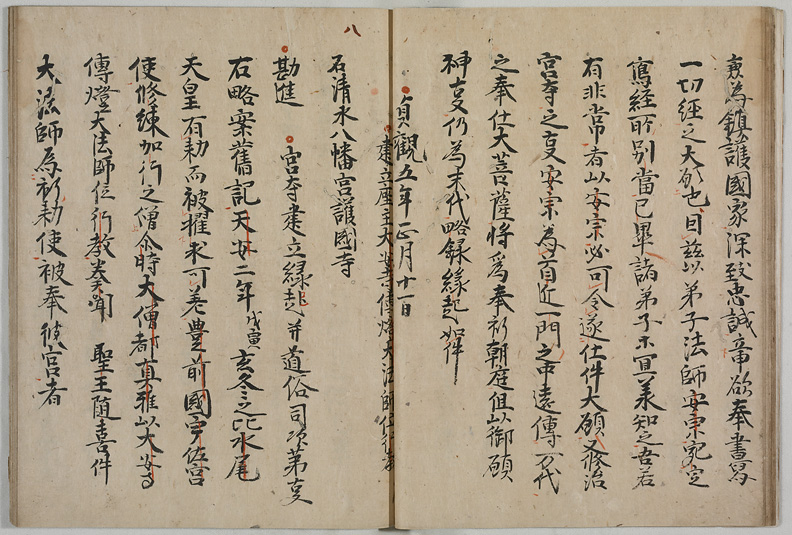 更為鎮護國家深致忠誠專欲奉書寫
一切經之大願也因茲以弟子法師安宗宛定
寫經所別當已畢諸弟子等冥美知之吾若
有非常者以安宗必可令遂仕件大願又修治
宮寺之事安宗為首近一門之中遠傳万代
之奉仕大菩薩将為奉祈朝庭但以御願
神事仍為末代略録縁起如件
貞觀五年正月十一日
建立座主大法師傳燈大法師位行教
八
石清水八幡宮護國寺
勘進 宮寺建立縁起并道俗司次第事
右略案舊記天安二年戊寅玄冬之比水尾
天皇有勅而被擢求可差豊前國宇佐宮
使修練加行之僧令時大僧都真雅以大安寺
傳燈大法師位行教奏聞 聖王随喜件
大法師為祈勅使被奉彼宮者